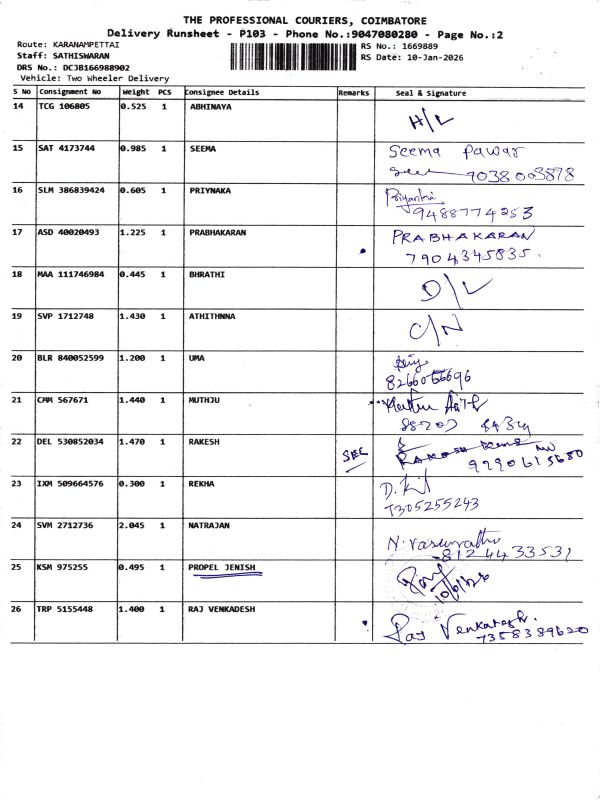 THE PROFESSIONAL COURIERS, COIMBATORE
Delivery Runsheet - P103 - Phone No.:9047080280 - Page No.:2
Route: KARANAMPETTAI
RS No.: 1669889
Staff: SATHISWARAN
RS Date: 10-Jan-2026
DRS No.: DCJB166988902
Vehicle: Two Wheeler Delivery
S No Consignment No Weight PCS Consignee Details Remarks Seal & Signature
14 TCG 106805 0.525 1 ABHINAYA
15 SAT 4173744 0.985 1 SEEMA Seema Pawar
7038003878
16 SLM 386839424 0.605 1 PRIYNAKA
9488774253
17 ASD 40020493 1.225 1 PRABHAKARAN PRABHAKARAN
7904345835.
18 MAA 111746984 0.445 1 BHRATHI D/L
19 SVP 1712748 1.430 1 ATHITHNNA C/N
20 BLR 840052599 1.200 1 UMA
21 CMM 567671 1.440 1 MUTHJU
22 DEL 530852034 1.470 1 RAKESH
23 IXM 509664576 0.300 1 REKHA
7305255243
24 SVM 2712736 2.045 1 NATRAJAN
8124433531
25 KSM 975255 0.495 1 PROPEL JENISH
26 TRP 5155448 1.400 1 RAJ VENKADESH Raj Venkatesh.
7358389620